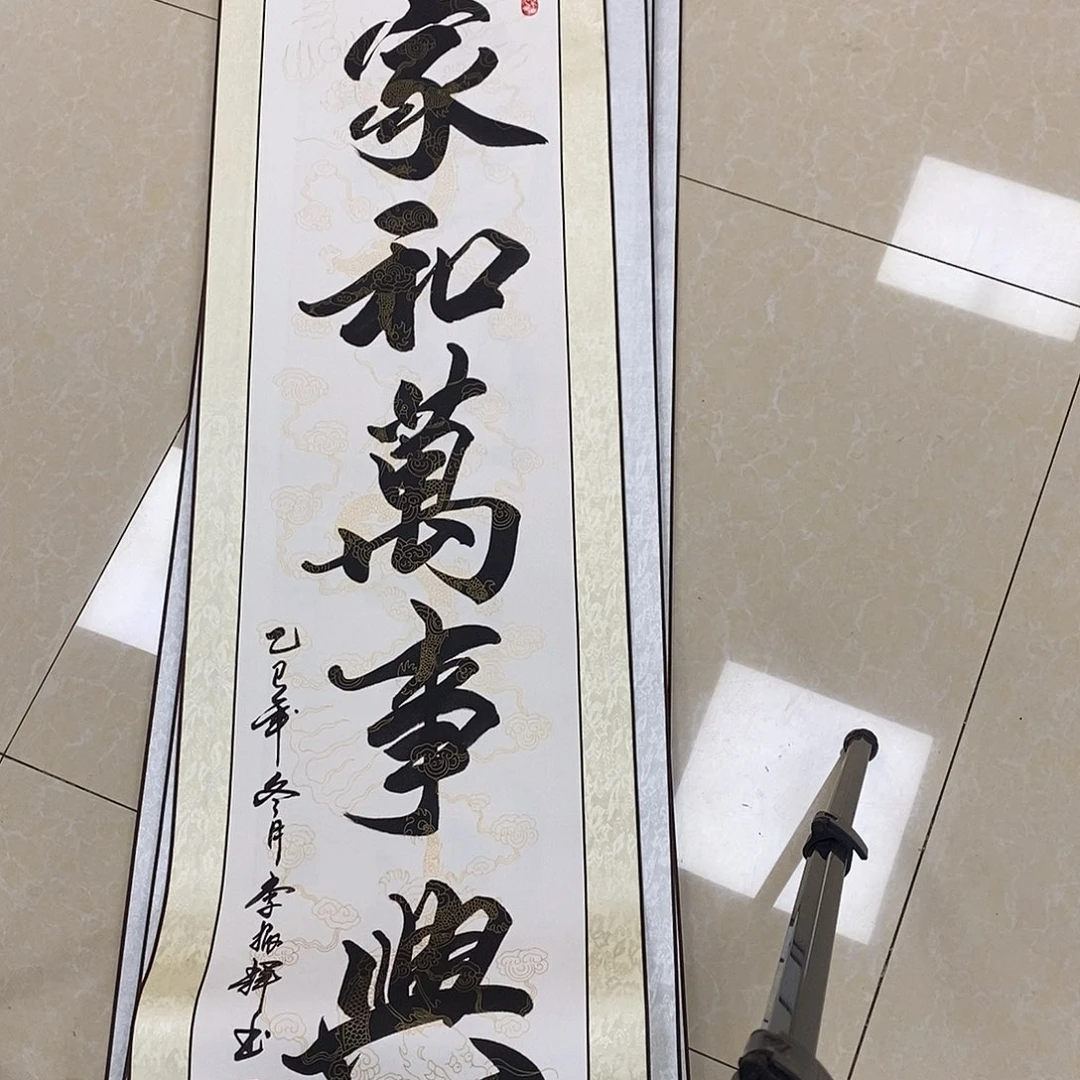 家和萬事興
乙巳年冬月李振輝書